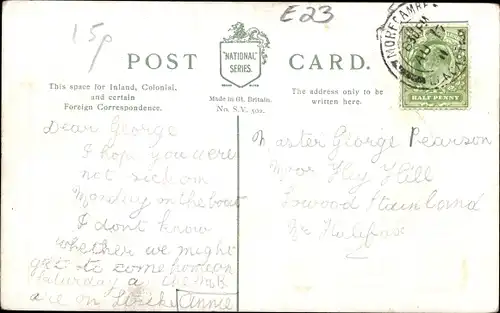 15p
E23
"NATIONAL"
SERIES.
POST CARD.
This space for Inland, Colonial,
and certain
Foreign Correspondence.
Made in Gt. Britain.
No. S.V. 502.
The address only to be
written here.
MORECAMBE
HALF PENNY
Dear George
I hope you were
not sick on
Monday on the boat
I dont know
whether we might
get to come home on
Saturday a
are on Strike Annie
Master George Pearson
Moor Hey Hill
Lowood Stainland
Nr Halifax